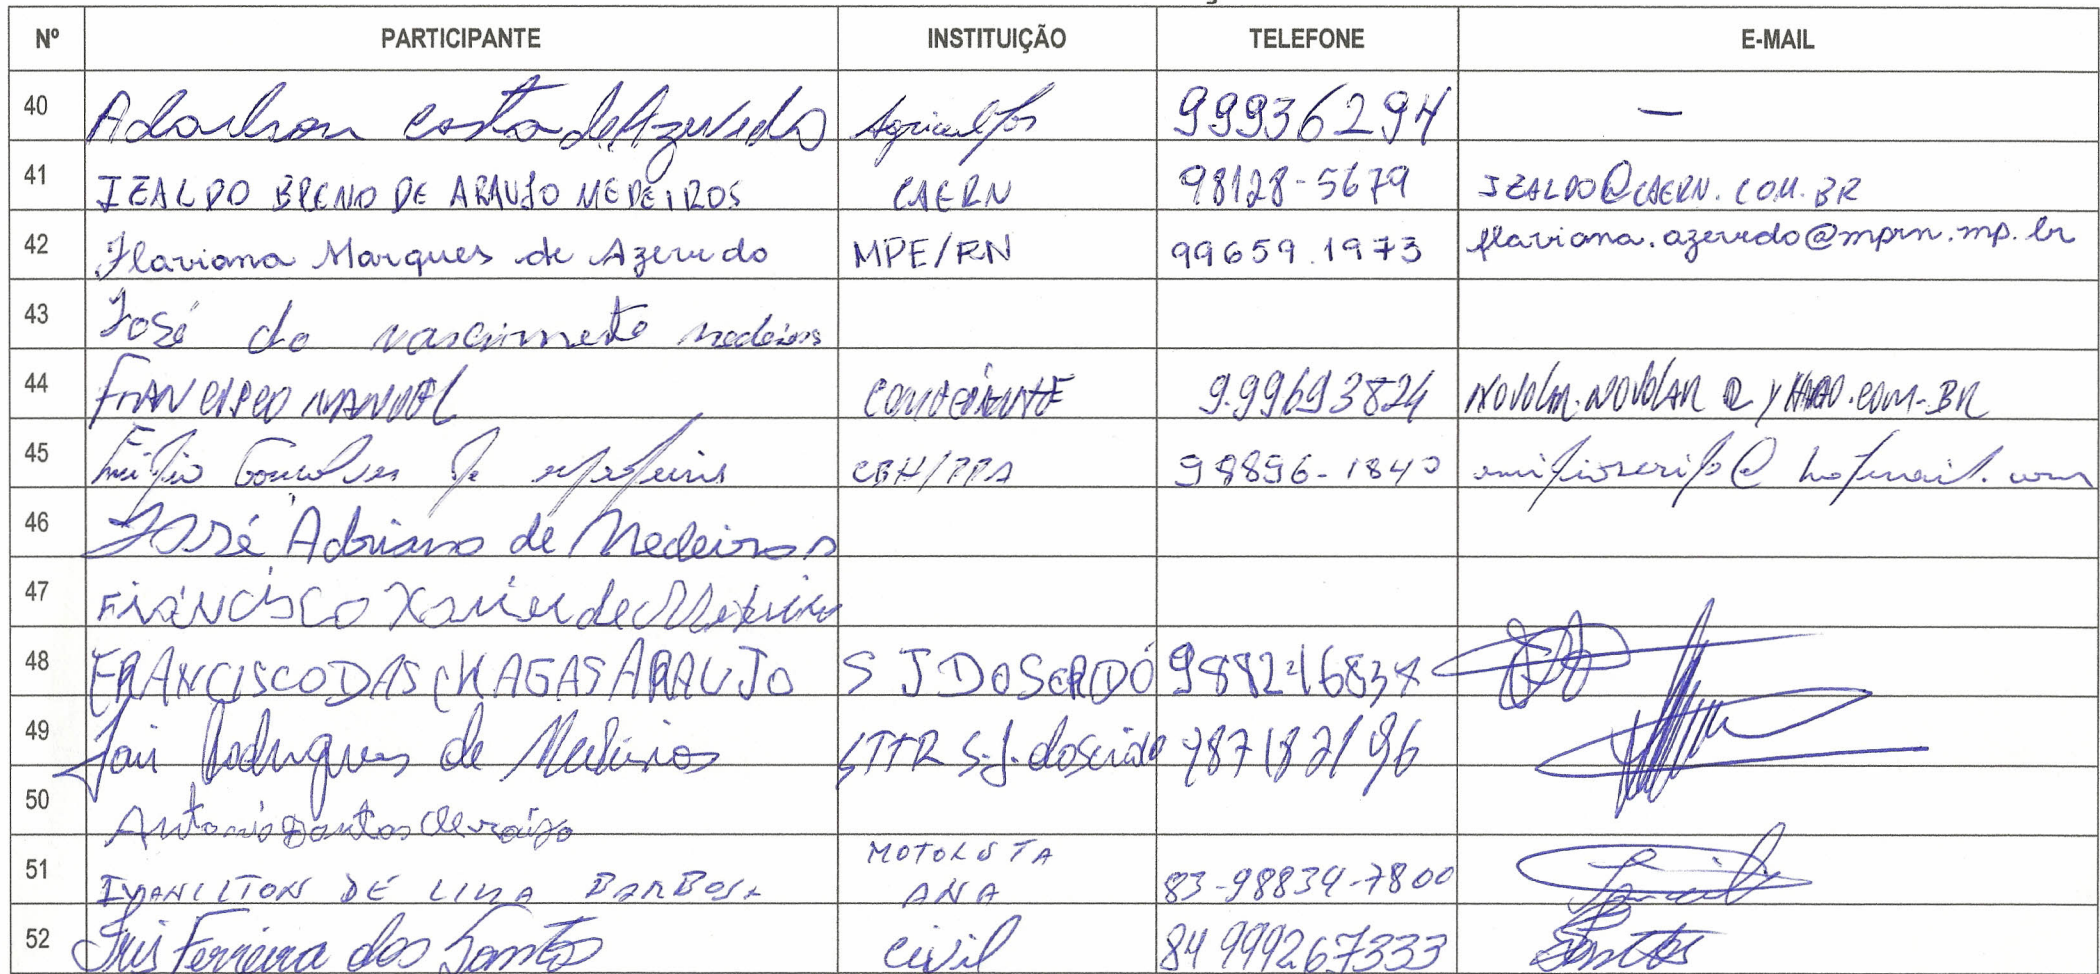 Nº PARTICIPANTE INSTITUIÇÃO TELEFONE E-MAIL
40 Adailson Costa de Azevedo Agricultor 99936294 —
41 IZALDO BRENO DE ARAUJO MEDEIROS CAERN 98128-5679 IZALDO@CAERN.COM.BR
42 Flaviana Marques de Azevedo MPE/RN 99659.1973 flaviana.azevedo@mprn.mp.br
43 José do nascimeto medeiros
44 FRANCISCO MANOEL 9.99693824 NOVOLAR.NOVOLAR@YAHOO.COM.BR
45 CBH/PPA 98896-1840
46 José Adriano de Medeiros
47 FRANCISCO Xavier de Medeiros
48 FRANCISCO DAS CHAGAS ARAUJO S J DO SERIDÓ
49 Jair Rodrigues de Medeiros STTR S.J. do Seridó 987182196
50 Antonio Dantas
51 IVANILTON DE LIMA BARBOSA MOTORISTA
ANA 83-98834-7800
52 Ferreira dos Santos Civil 84 999267333 Santos